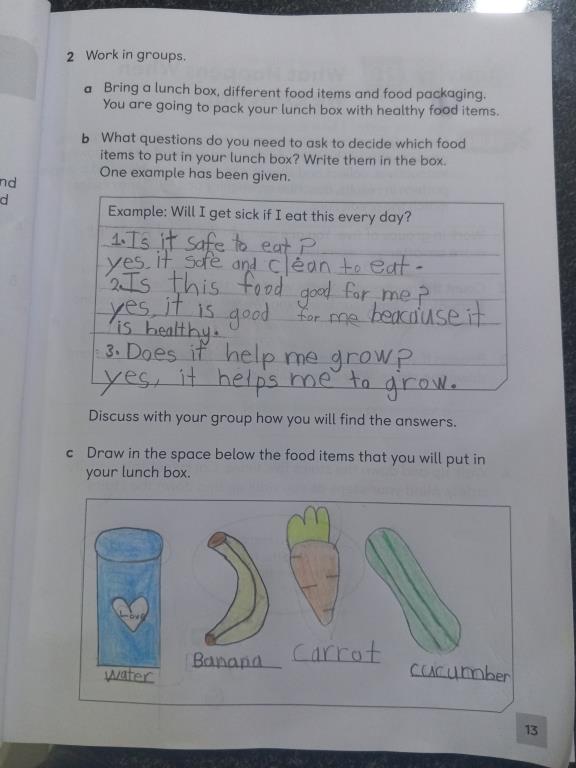 2 Work in groups.
a Bring a lunch box, different food items and food packaging.
You are going to pack your lunch box with healthy food items.
b What questions do you need to ask to decide which food
items to put in your lunch box? Write them in the box.
One example has been given.
Example: Will I get sick if I eat this every day?
1. Is it safe to eat?
yes, it safe and clean to eat.
2. Is this food good for me?
yes, it is good for me beacause it
is healthy.
3. Does it help me grow?
yes, it helps me to grow.
Discuss with your group how you will find the answers.
c Draw in the space below the food items that you will put in
your lunch box.
Love
water Banana carrot cucumber
13
nd
d